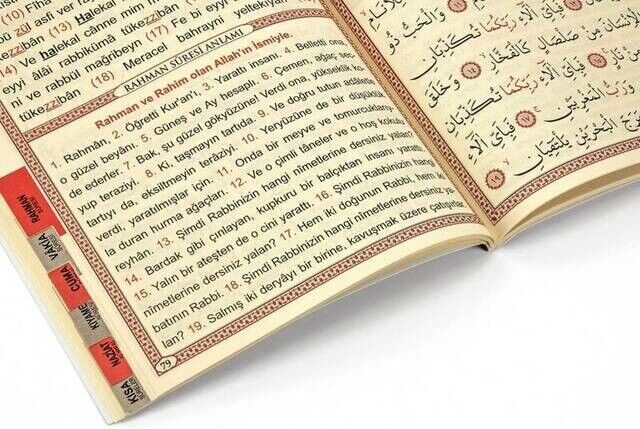 zül asfi ver
(14) Halekal cânne mim
tükezzibân
(16) Fe bi eyyi
ve halekal
eyyi âlâi rabbikümâ tükezzibân
ni ve rabbül mağribeyn (17)
tükezzibân (18) Meracel bahrayni yeltekıyân
RAHMAN SÛRESİ ANLAMI
Rahman ve Rahim olan Allah'ın ismiyle.
1. Rahmân, 2. Öğretti Kur'an'ı, 3. Yarattı insanı. 4. Belletti ona,
o güzel beyânı. 5. Güneş ve Ay hesaplı. 6. Çemen, ağaç sec-
de ederler. 7. Bak, şu güzel gökyüzüne! Verdi ona, yükseklik ko-
yup teraziyi. 8. Ki, taşmayın tartıda. 9. Ve doğru tutun adâletle
tartıy da, eksiltmeyin terâziyi. 10. Yeryüzüne de bir düşüklük
verdi, yaratılmışlar için. 11. Onda bir meyve ve tomurcuklarıy-
la duran hurma ağaçları. 12. Ve o çimli tâneler ve o hoş kokulu
reyhân. 13. Şimdi Rabbinizin hangi nîmetlerine dersiniz yalan?
14. Bardak gibi çınlayan, kupkuru bir balçıktan insanı yarattı.
15. Yalın bir ateşten de o cini yarattı. 16. Şimdi Rabbinizin hangi
nîmetlerine dersiniz yalan? 17. Hem iki doğunun Rabbi, hem iki
batının Rabbi. 18. Şimdi Rabbinizin hangi nîmetlerine dersiniz ya-
lan? 19. Salmış iki deryâyı bir birine, kavuşmak üzere çatışırlar
79
RAHMAN SÛRESİ
VAKIA
CUMA
KIYAME
NAZİAT
KISA SÛRELER
مِنْ صَلْصَالٍ كَالْفَخَّارِ ﴿١٤﴾ وَخَلَقَ
فَبِأَيِّ آلَاءِ رَبِّكُمَا تُكَذِّبَانِ
وَرَبُّ الْمَغْرِبَيْنِ ﴿١٧﴾ فَبِأَيِّ آلَاءِ
الْبَحْرَيْنِ يَلْتَقِيَانِ ﴿١٩﴾